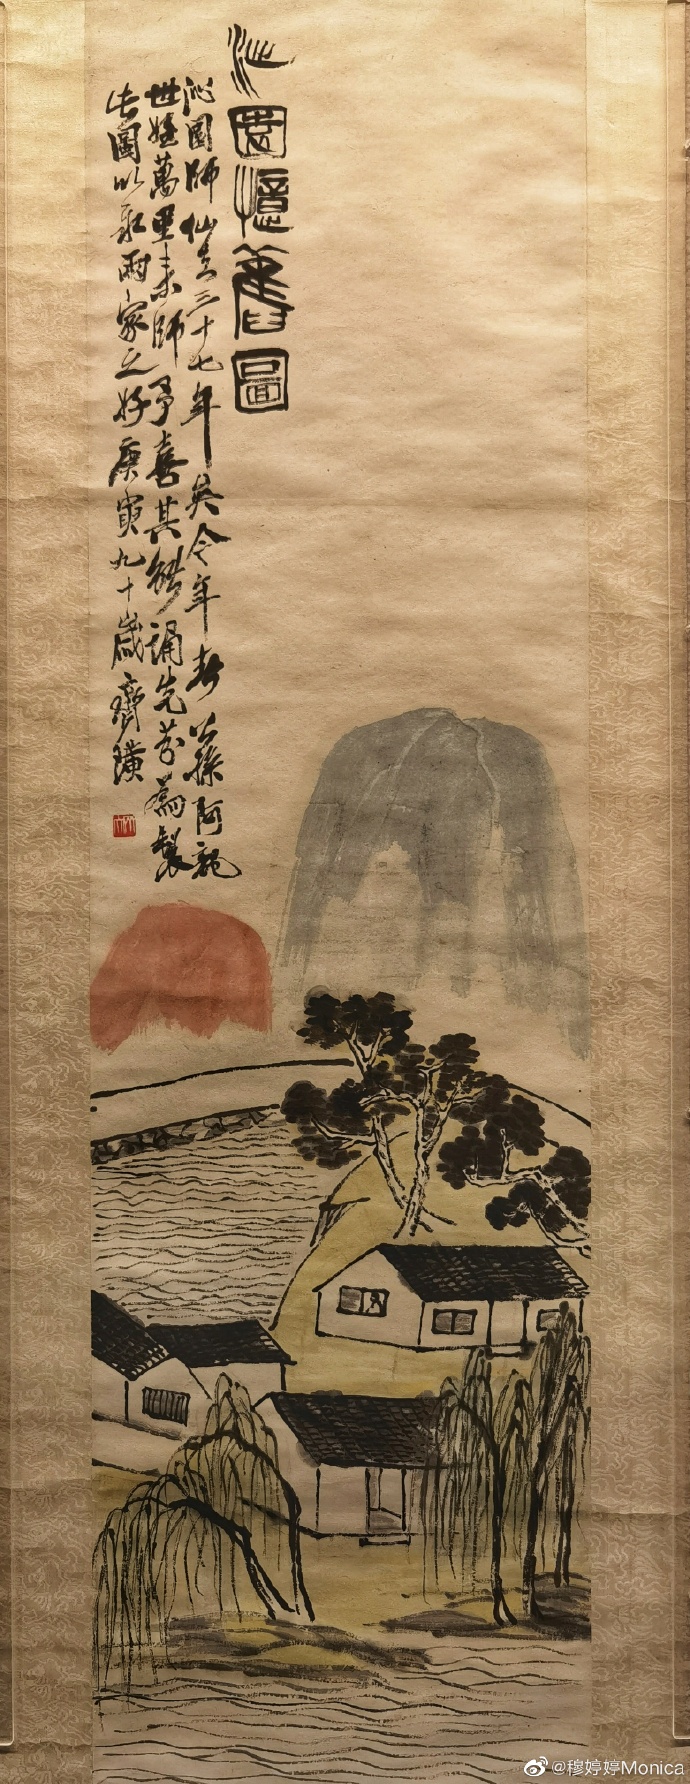 沁園憶舊圖
沁園師仙去三十七年矣今年春公孫阿龍
世姪萬里來師予喜其能誦先芬為製
此圖以永兩家之好庚寅九十歲齊璜
@穆婷婷Monica